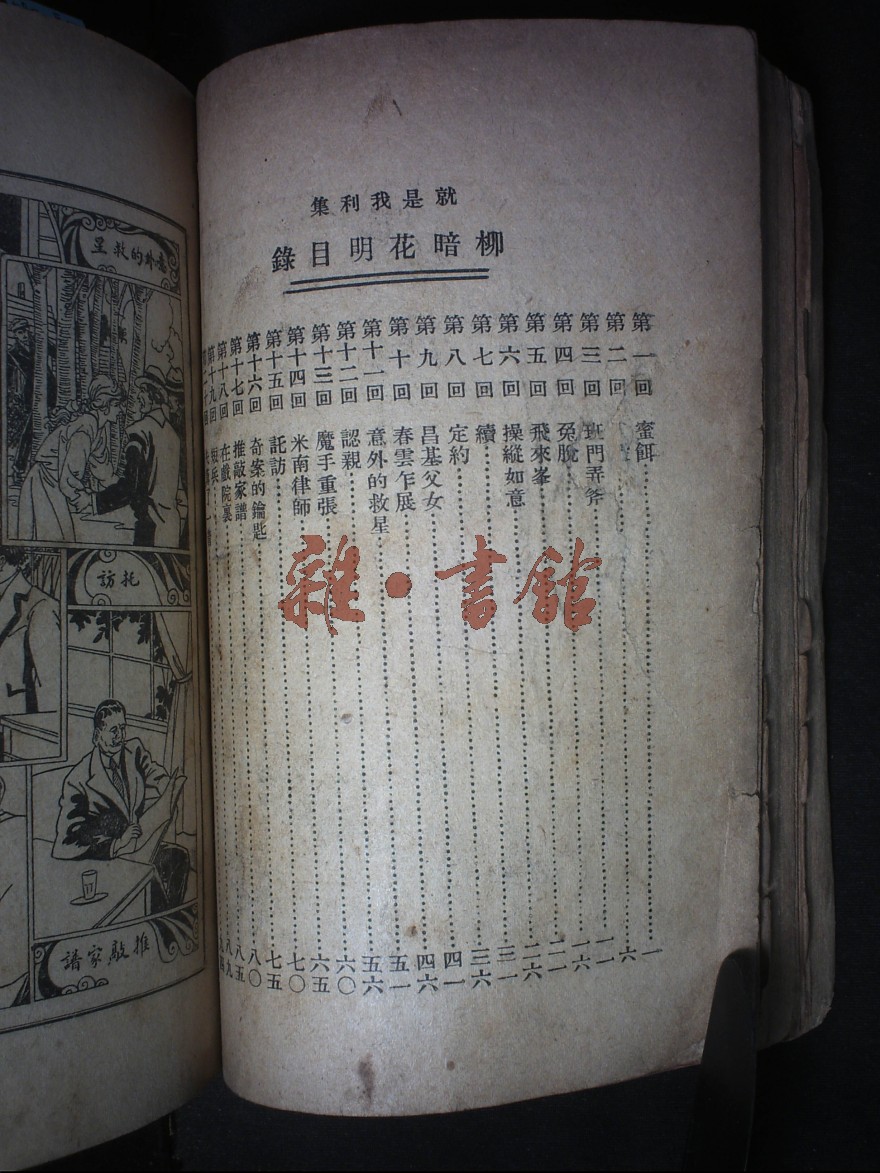 就是我利集
柳暗花明目錄
第一回 蜜餌 一
第二回 六
第三回 班門弄斧 一一
第四回 兔脫 二一
第五回 飛來峯 二六
第六回 操縱如意 三一
第七回 續 三六
第八回 定約 四一
第九回 昌基父女 四六
第十回 春雲乍展 五一
第十一回 意外的救星 五六
第十二回 認親 六〇
第十三回 魔手重張 六五
第十四回 米南律師 七〇
第十五回 託訪 七五
第十六回 奇案的鑰匙 八〇
第十七回 推敲家譜 八五
第十八回 在戲院裏 八九
第十九回
意外的救星
托訪
推敲家譜
雜·書館